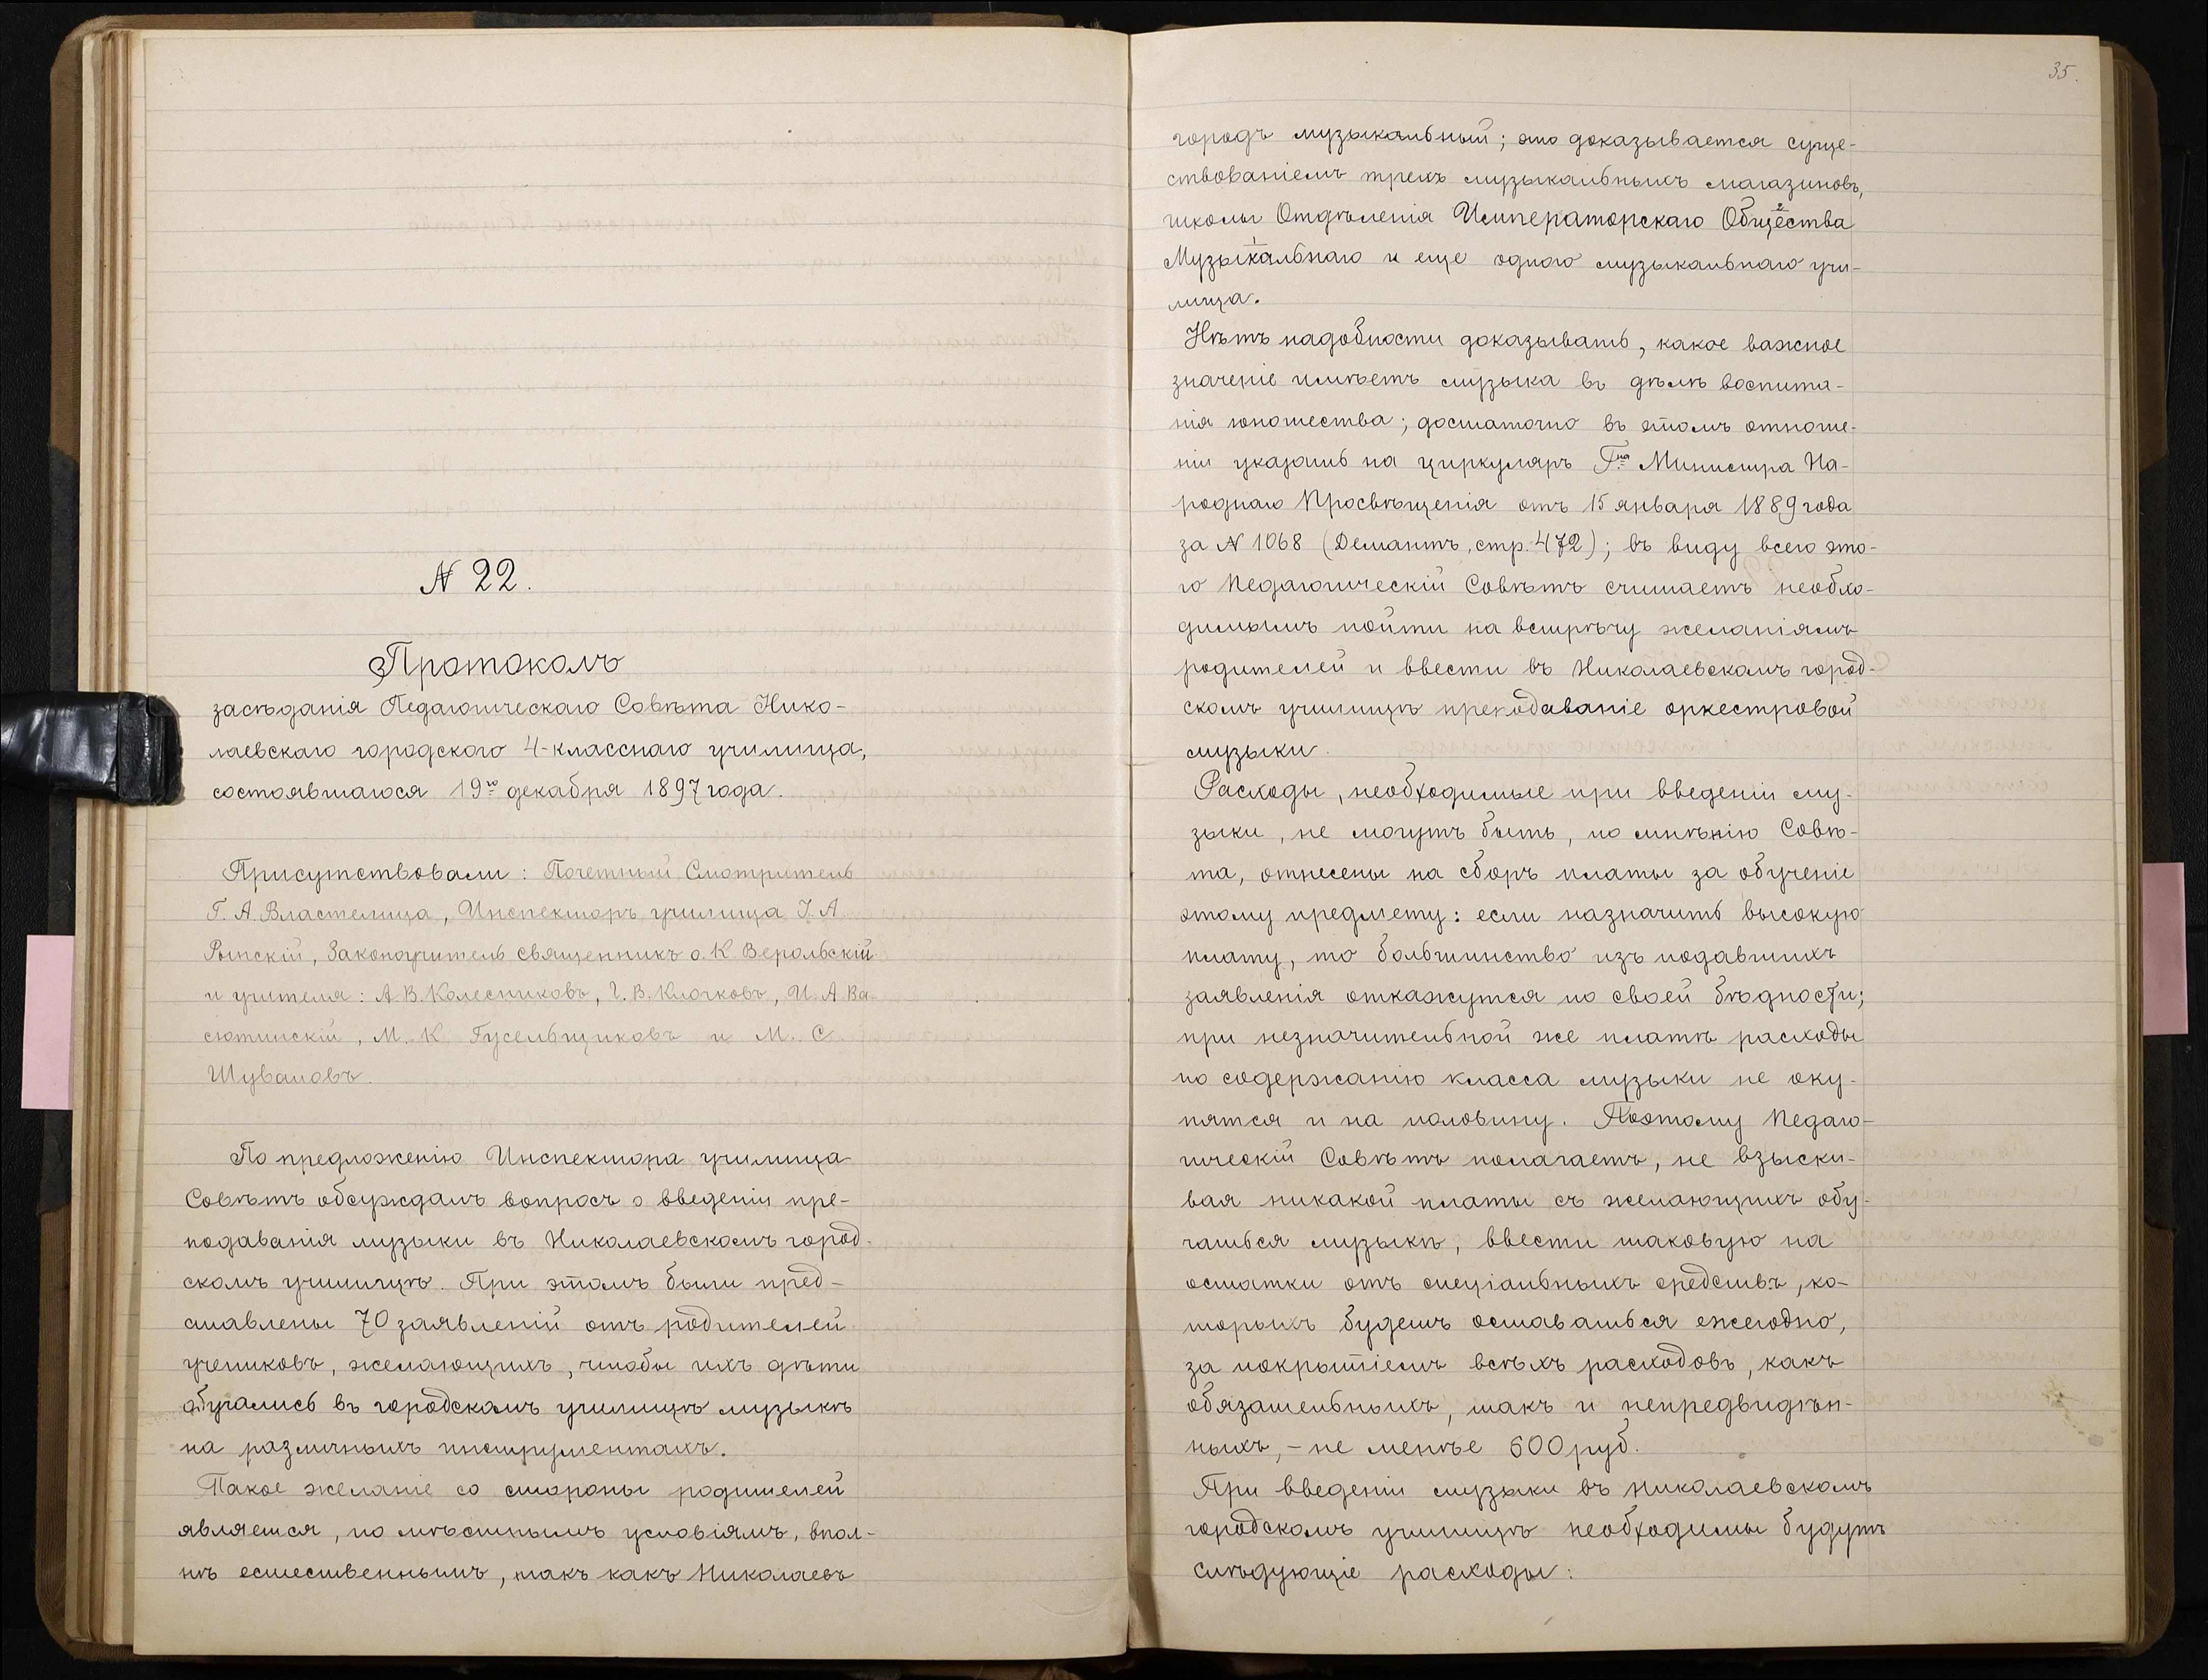 N 22.
Протоколъ
засѣданія Педагогическаго Совѣта Нико-
лаевскаго городского 4-класснаго училища,
состоявшагося 19го декабря 1897 года.
Присутствовали: Почетный Смотритель
Г. А. Властелица, Инспекторъ училища І. А.
Рынскій, Законоучитель священникъ о. К. Верольскій
и учителя: А. В. Колесниковъ, Г. В. Клочковъ, И. А. Ва-
сютинскій, М. К. Гусельщиковъ и М. С.
Шуваловъ.
По предложенію Инспектора училища
Совѣтъ обсуждалъ вопросъ о введеніи пре-
подаванія музыки въ Николаевскомъ город-
скомъ училищѣ. При этомъ были пред-
ставлены 70 заявленій отъ родителей
учениковъ, желающихъ, чтобы ихъ дѣти
обучались въ городскомъ училищѣ музыкѣ
на различныхъ инструментахъ.
Такое желаніе со стороны родителей
является, по мѣстнымъ условіямъ, впол-
нѣ естественнымъ, такъ какъ Николаевъ
35.
городъ музыкальный; это доказывается суще-
ствованіемъ трехъ музыкальныхъ магазиновъ,
школы Отдѣленія Императорскаго Общества 2
Музыкальнаго 1 и еще одного музыкальнаго учи-
лища.
Нѣтъ надобности доказывать, какое важное
значеніе имѣетъ музыка въ дѣлѣ воспита-
нія юношества; достаточно въ этомъ отноше-
ніи указать на циркуляръ Гна Министра На-
роднаго Просвѣщенія отъ 15 января 1889 года
за N 1068 (Демантъ, стр. 472); въ виду всего это-
го Педагогическій Совѣтъ считаетъ необхо-
димымъ пойти на встрѣчу желаніямъ
родителей и ввести въ Николаевскомъ город-
скомъ училищѣ преподаваніе оркестровой
музыки.
Расходы, необходимые при введеніи му-
зыки, не могутъ быть, по мнѣнію Совѣ-
та, отнесены на сборъ платы за обученіе
этому предмету: если назначить высокую
плату, то большинство изъ подавшихъ
заявленія откажутся по своей бѣдности;
при незначительной же платѣ расходы
по содержанію класса музыки не оку-
пятся и на половину. Поэтому Педаго-
гическій Совѣтъ полагаетъ, не взыски-
вая никакой платы съ желающихъ обу-
чаться музыкѣ, ввести таковую на
остатки отъ спеціальныхъ средствъ, ко-
торыхъ будетъ оставаться ежегодно,
за покрытіемъ всѣхъ расходовъ, какъ
обязательныхъ, такъ и непредвидѣн-
ныхъ, - не менѣе 600 руб.
При введеніи музыки въ Николаевскомъ
городскомъ училищѣ необходимы будутъ
слѣдующіе расходы: